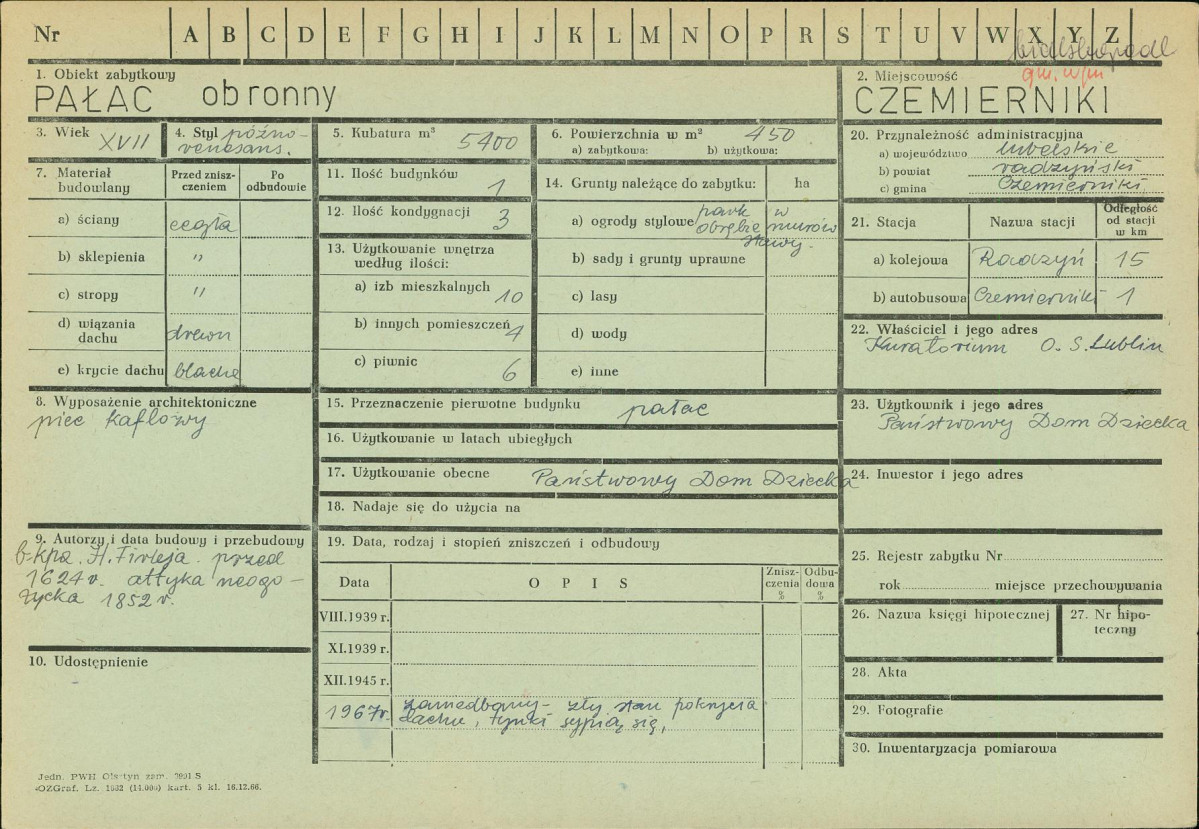 Nr A B C D E F G H I J K L M N O P R S T U V W X Y Z
bialskopodl
gm. w/m
1. Obiekt zabytkowy
PAŁAC obronny
2. Miejscowość
CZEMIERNIKI
3. Wiek XVII
4. Styl późno-
renesans.
5. Kubatura m³ 5400
6. Powierzchnia w m² 450
a) zabytkowa: b) użytkowa:
7. Materiał budowlany
Przed znisz-
czeniem
Po
odbudowie
a) ściany cegła
b) sklepienia "
c) stropy "
d) wiązania
dachu drewn
e) krycie dachu blacha
8. Wyposażenie architektoniczne
piec kaflowy
9. Autorzy i data budowy i przebudowy
b-kpa. H. Firleja przed
1624 r. attyka neogo-
tycka 1852 r.
10. Udostępnienie
11. Ilość budynków 1
12. Ilość kondygnacji 3
13. Użytkowanie wnętrza
według ilości:
a) izb mieszkalnych 10
b) innych pomieszczeń 4
c) piwnic 6
14. Grunty należące do zabytku: ha
a) ogrody stylowe park w
obrębie murów
stawy.
b) sady i grunty uprawne
c) lasy
d) wody
e) inne
15. Przeznaczenie pierwotne budynku pałac
16. Użytkowanie w latach ubiegłych
17. Użytkowanie obecne Państwowy Dom Dziecka
18. Nadaje się do użycia na
19. Data, rodzaj i stopień zniszczeń i odbudowy
Data O P I S
Znisz-
czenia
%
Odbu-
dowa
%
VIII.1939 r.
XI.1939 r.
XII.1945 r.
1967 r. zaniedbany - zły stan pokrycia
dachu, tynki sypią się,
20. Przynależność administracyjna
a) województwo lubelskie
b) powiat radzyński
c) gmina Czemierniki
21. Stacja Nazwa stacji
Odległość
od stacji
w km
a) kolejowa Radzyń 15
b) autobusowa Czemierniki 1
22. Właściciel i jego adres
Kuratorium O. S. Lublin
23. Użytkownik i jego adres
Państwowy Dom Dziecka
24. Inwestor i jego adres
25. Rejestr zabytku Nr
rok miejsce przechowywania
26. Nazwa księgi hipotecznej
27. Nr hipo-
teczny
28. Akta
29. Fotografie
30. Inwentaryzacja pomiarowa
Jedn. PWH Olsztyn zam. 3991 S
OZGraf. Lz. 1682 (14.000) kart. 5 kl. 16.12.66.